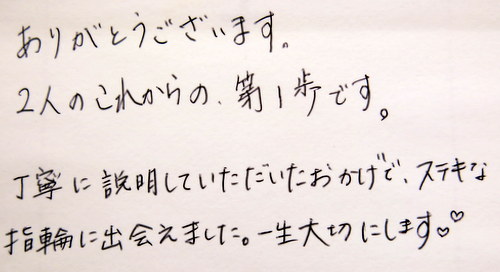 ありがとうございます。
2人のこれからの、第1歩です。
丁寧に説明していただいたおかげで、ステキな
指輪に出会えました。一生大切にします♡♡